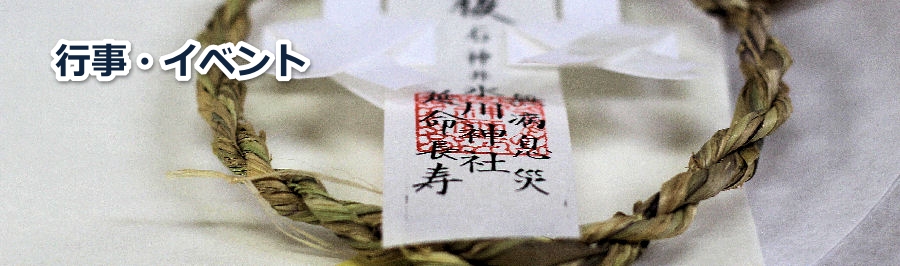 行事・イベント
無病息災
祓 石神井氷川神社
延命長寿